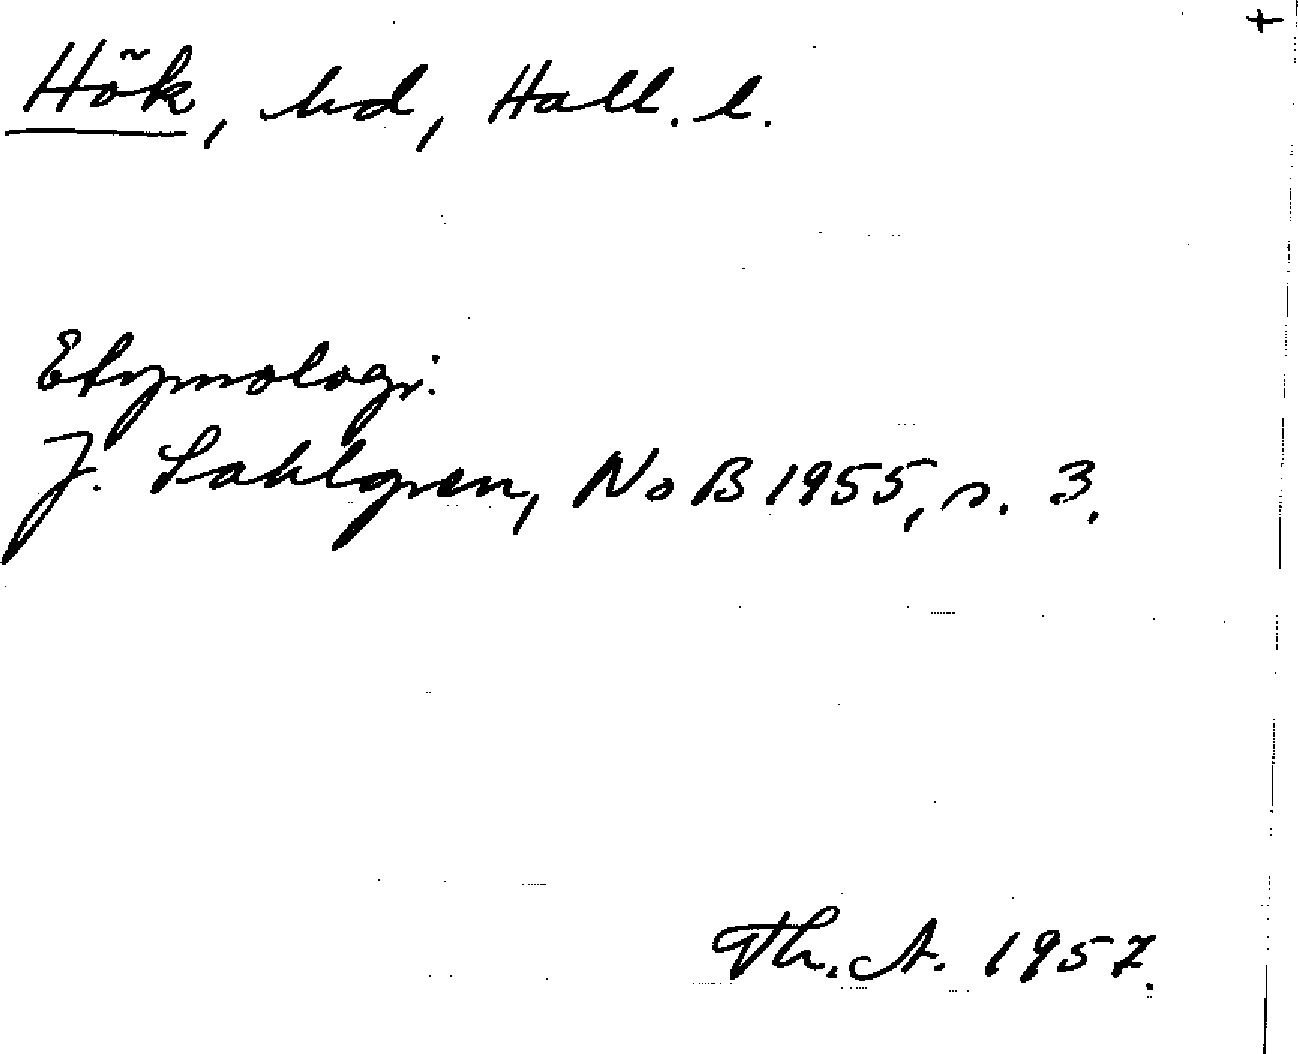 +
Hök, hd, Hall. l.
Etymologi:
J. Sahlgren, NoB 1955, s. 3.
Th. A. 1957.